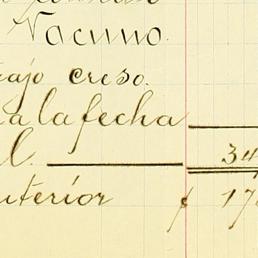 Vacuno.
ajo creso.
a la fecha
l. 34
nterior $ 17